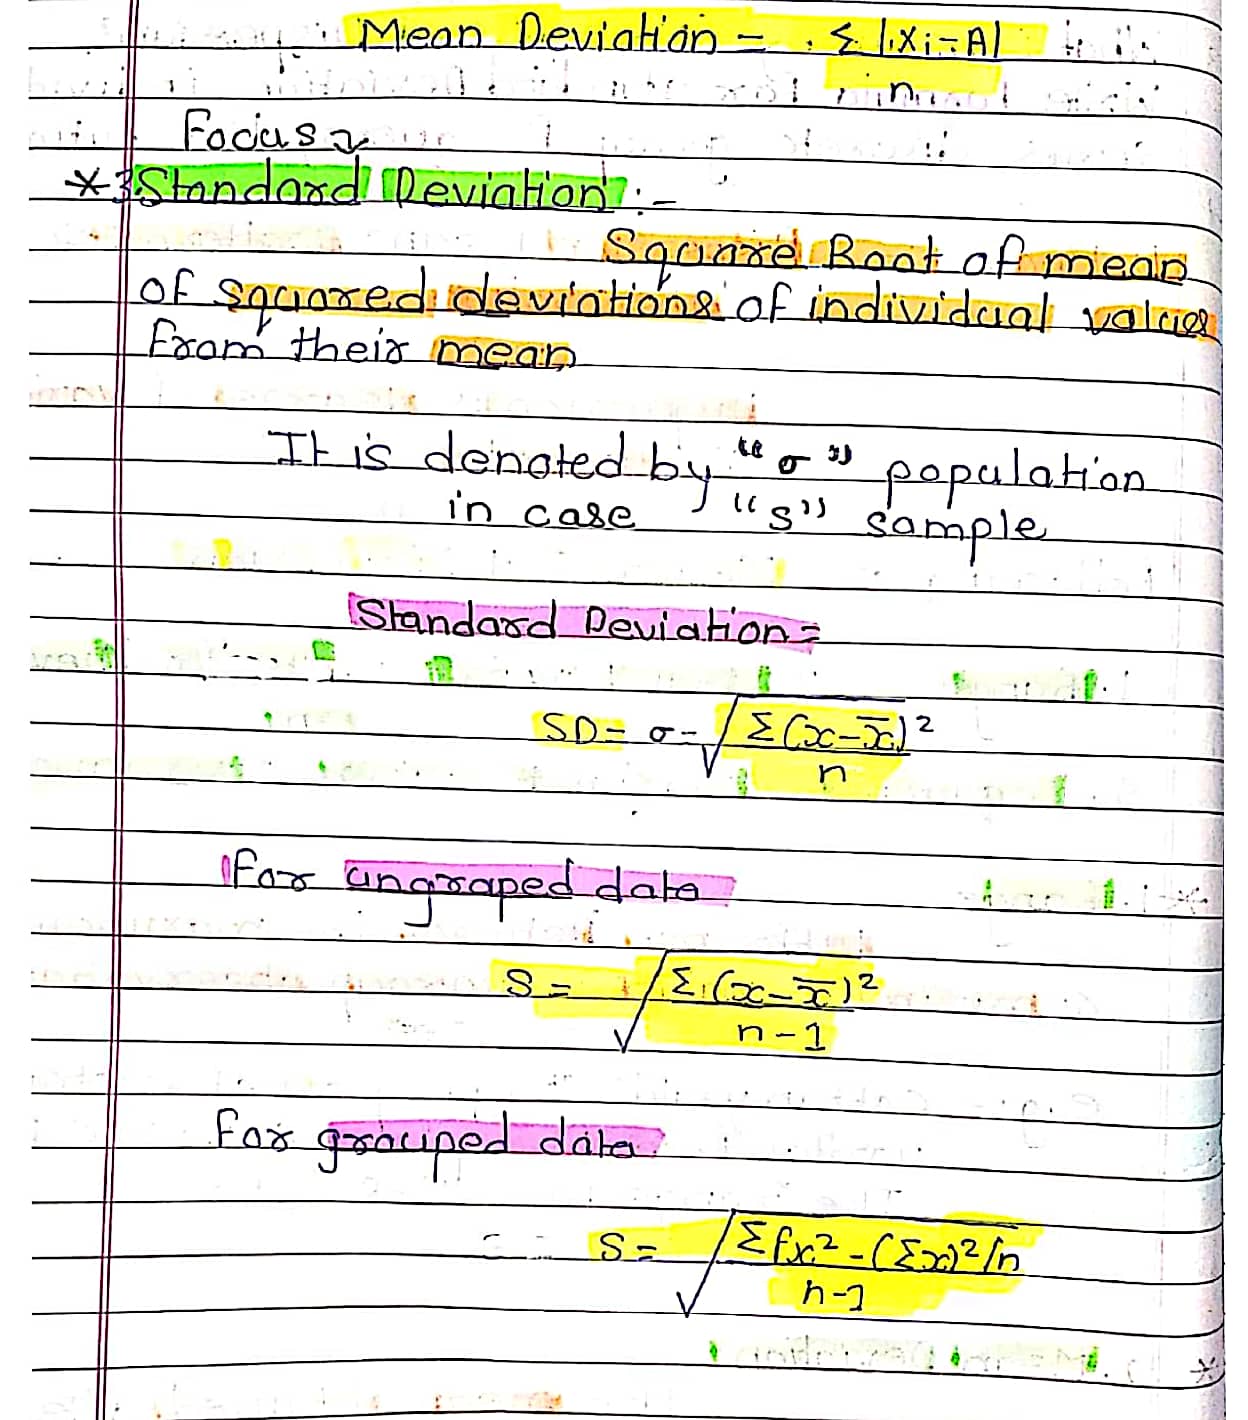 Mean Deviation = Σ |Xi - A|
n
Focus
* 3 Standard Deviation :-
Square Root of mean
of squared deviations of individual values
from their mean
It is denoted by "σ" population
in case "s" sample
Standard Deviation =
SD = σ = √ Σ (x - x̄)²
n
For ungraped data
S = √ Σ (x - x̄)²
n - 1
For grouped data
S = √ Σ fx² - (Σx)² / n
n - 1